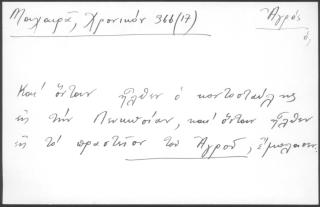 Μαχαιρᾶ, Χρονικόν 366 (17)
Ἀγρός
ὁ,
Καὶ ὅνταν ἦλθεν ὁ κοντοσταύλης
εἰς τὴν Λευκωσίαν, καὶ ὅνταν ἦλθεν
εἰς τὸ προαστῆον τοῦ Ἀγροῦ,